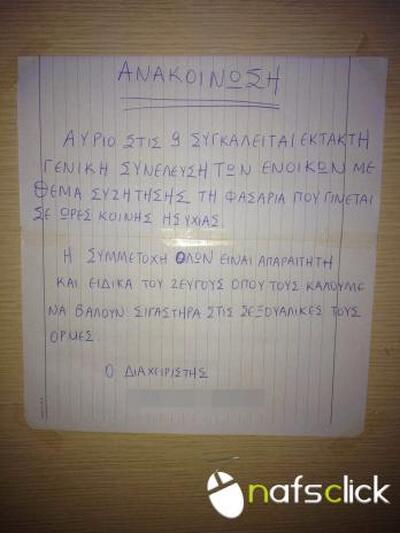 ΑΝΑΚΟΙΝΩΣΗ
ΑΥΡΙΟ ΣΤΙΣ 9 ΣΥΓΚΑΛΕΙΤΑΙ ΕΚΤΑΚΤΗ
ΓΕΝΙΚΗ ΣΥΝΕΛΕΥΣΗ ΤΩΝ ΕΝΟΙΚΩΝ ΜΕ
ΘΕΜΑ ΣΥΖΗΤΗΣΗΣ ΤΗ ΦΑΣΑΡΙΑ ΠΟΥ ΓΙΝΕΤΑΙ
ΣΕ ΩΡΕΣ ΚΟΙΝΗΣ ΗΣΥΧΙΑΣ.
Η ΣΥΜΜΕΤΟΧΗ ΟΛΩΝ ΕΙΝΑΙ ΑΠΑΡΑΙΤΗΤΗ
ΚΑΙ ΕΙΔΙΚΑ ΤΟΥ ΖΕΥΓΟΥΣ ΟΠΟΥ ΤΟΥΣ ΚΑΛΟΥΜΕ
ΝΑ ΒΑΛΟΥΝ ΣΙΓΑΣΤΗΡΑ ΣΤΙΣ ΣΕΞΟΥΑΛΙΚΕΣ ΤΟΥΣ
ΟΡΜΕΣ.
Ο ΔΙΑΧΕΙΡΙΣΤΗΣ
nafsclick